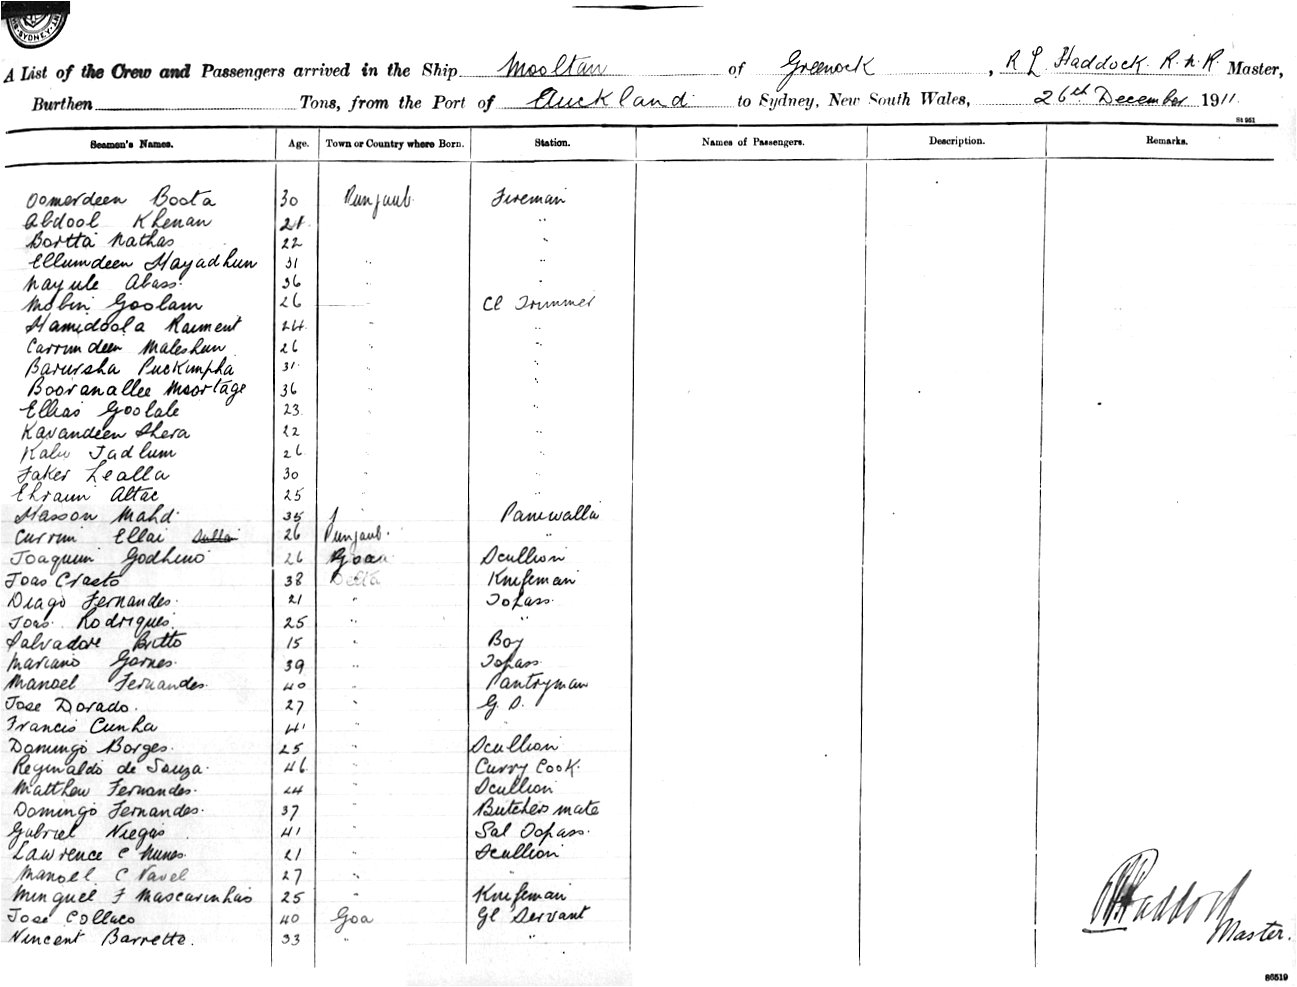 SYDNEY
A List of the Crew and Passengers arrived in the Ship Mooltan of Greenock, R L Haddock R.N.R. Master,
Burthen Tons, from the Port of Auckland to Sydney, New South Wales, 26th December 1911
St 951
Seamen's Names. Age. Town or Country where Born. Station. Names of Passengers. Description. Remarks.
Oomerdeen Boota 30 Punjaub Fireman
Abdool Khenan 21 "
Bortta Nathas 22 "
Ellumdeen Hayadhun 31 " "
Nayule Abass 36 "
Mobin Goolam 26 Cl Trimmer
Hamidoola Raiment 24 " "
Carrimdeen Maleshun 26 " "
Barursha Puckimpha 31 " "
Booranallee Moortage 36 " "
Ellias Goolale 23 " "
Kavandeen Shera 22 " "
Kalu Fadlum 26 " "
Faker Lealla 30 " "
Ehraim Altae 25 " "
Hasson Mahd 35 Paniwalla
Currim Ellai 26 Punjaub. "
Joaquim Godhino 26 Goa Scullion
Joas Crasto 38 Knifeman
Diago Fernandes. 21 " Topass.
Joas. Rodrigues. 25 " "
Salvadore Britto 15 " Boy
Mariano Gomes. 39 " Topass
Manoel Fernandes. 40 " Pantryman
Jose Dorado. 27 " G. S.
Francis Cunha 41 " "
Domingo Borges. 25 " Scullion
Reginaldo de Souza. 46 " Curry Cook.
Matthew Fernandes. 24 " Scullion
Domingo Fernandes. 37 " Butchers mate
Gabriel Niegas 41 " Sal Topass.
Lawrence C Nunes. 21 " Scullion
Manoel C Navel 27 " "
Minguel F Mascarinhas 25 " Knifeman
Jose Collaco 40 Goa Gl Servant
Vincent Barretto. 33 " "
Haddock
Master.
86519